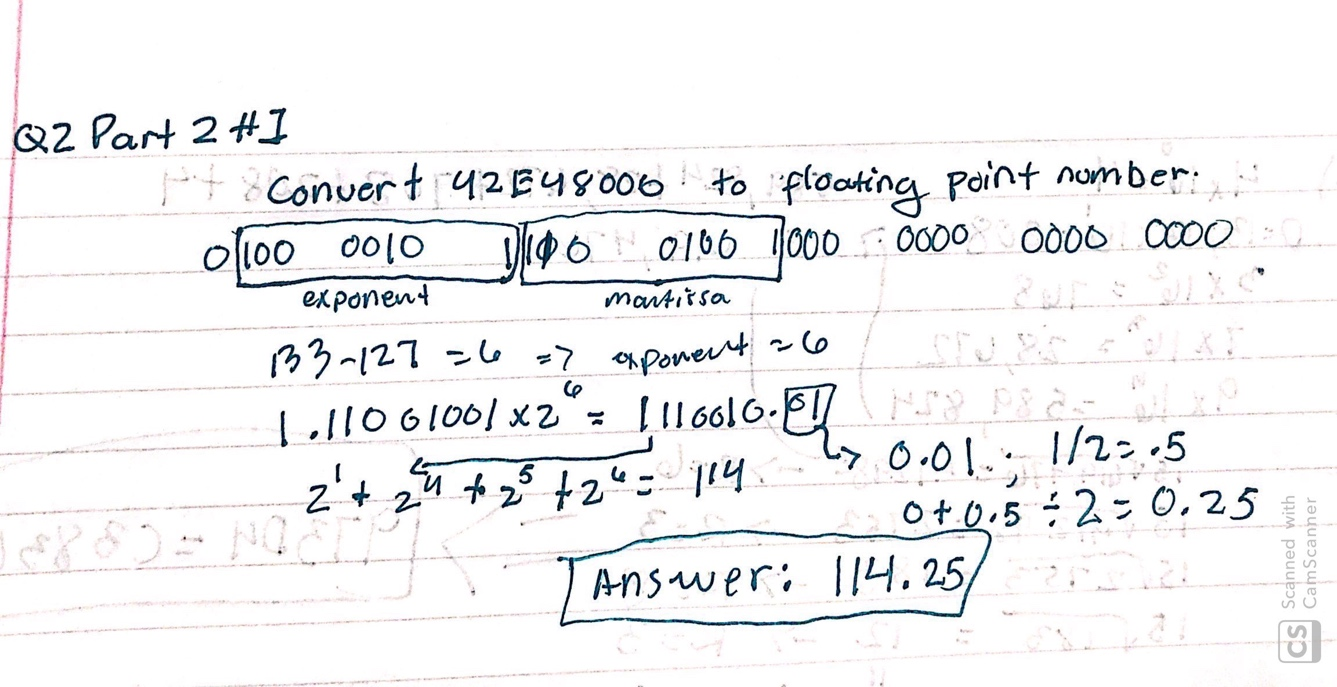 Q2 Part 2 #I
Convert 42E48000 to floating point number.
0 100 0010 1 100 0100 1 000 0000 0000 0000
exponent mantissa
133-127 = 6 => exponent = 6
1.110 01001 x 2^6 = 1110010.01
-> 0.01.; 1/2 = .5
2^1 + 2^4 + 2^5 + 2^6 = 114
0 + 0.5 ÷ 2 = 0.25
Answer: 114.25
Scanned with
CamScanner
CS